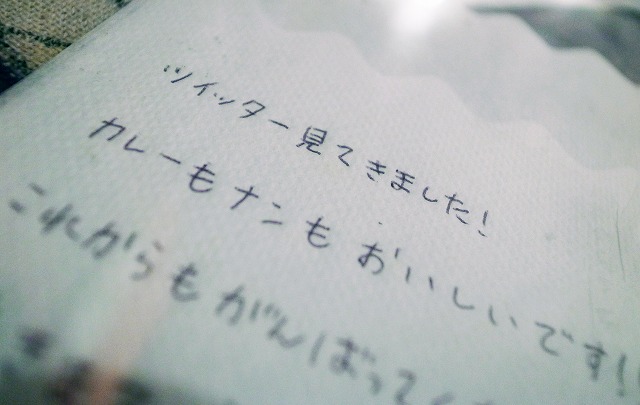 ツイッター見てきました!
カレーもナンもおいしいです!!
これからもがんばってく